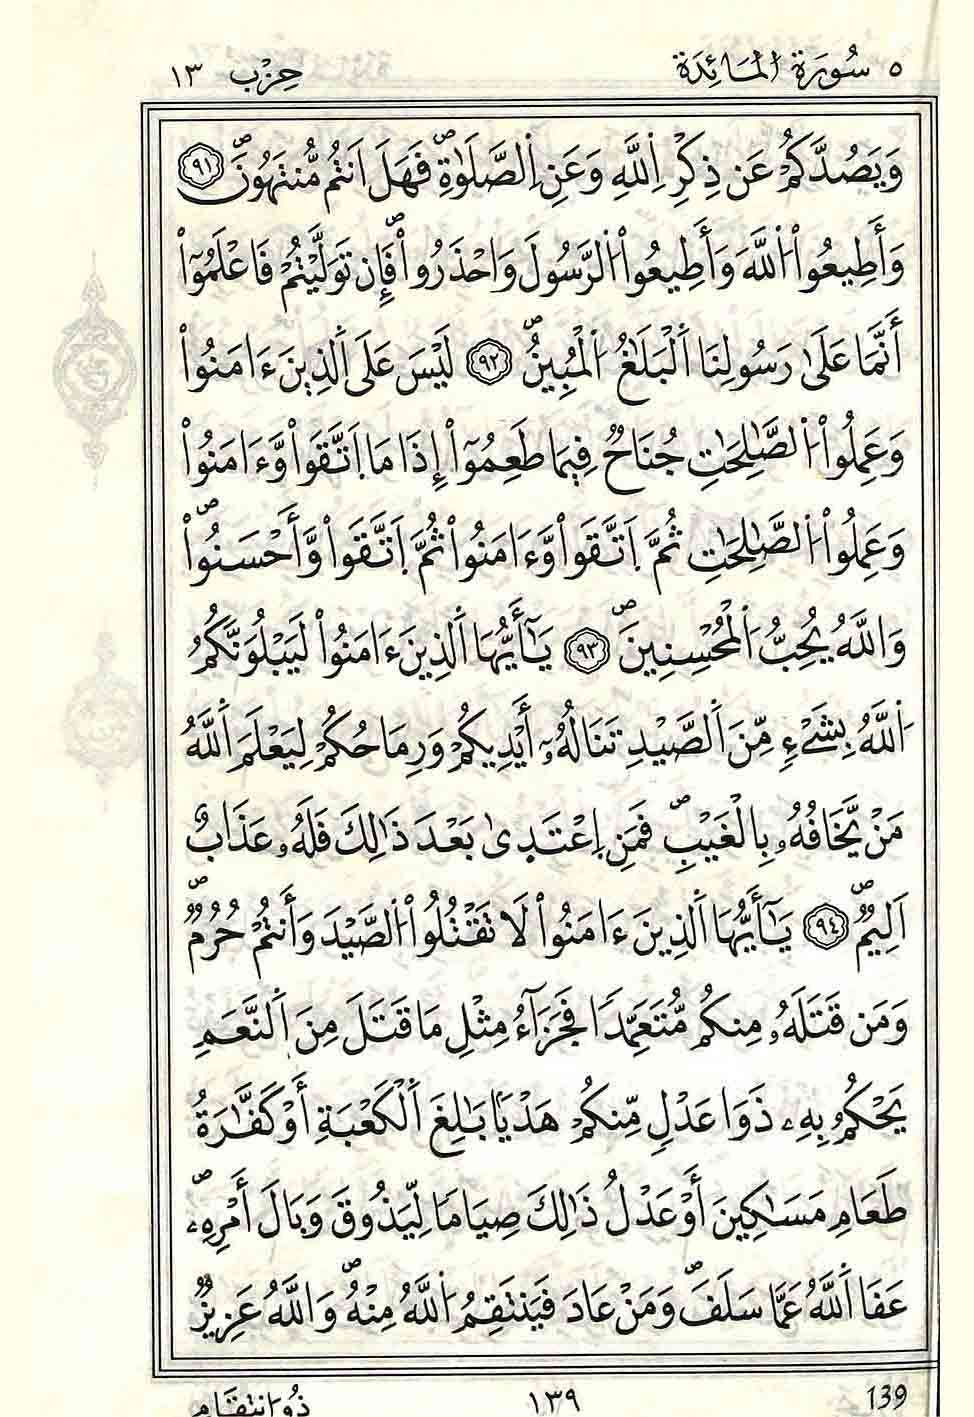 ٥ سُورَةُ الْمَائِدَةِ حِزْب ١٣
وَيَصُدَّكُمْ عَن ذِكْرِ اِ۬للَّهِ وَعَنِ اِ۬لصَّلَوٰةِۖ فَهَلَ اَنتُم مُّنتَهُونَۖ ٩١
وَأَطِيعُواْ اُ۬للَّهَ وَأَطِيعُواْ اُ۬لرَّسُولَ وَاحْذَرُواْۖ فَإِن تَوَلَّيْتُمْ فَاعْلَمُوٓاْ
أَنَّمَا عَلَىٰ رَسُولِنَا اَ۬لْبَلَٰغُ اُ۬لْمُبِينُۖ ٩٢ لَيْسَ عَلَى اَ۬لذِينَ ءَامَنُواْ
وَعَمِلُواْ اُ۬لصَّٰلِحَٰتِ جُنَاحٌ فِيمَا طَعِمُوٓاْ إِذَا مَا اَ۪تَّقَواْ وَّءَامَنُواْ
وَعَمِلُواْ اُ۬لصَّٰلِحَٰتِ ثُمَّ اَ۪تَّقَواْ وَّءَامَنُواْ ثُمَّ اَ۪تَّقَواْ وَّأَحْسَنُواْۖ
وَاللَّهُ يُحِبُّ اُ۬لْمُحْسِنِينَۖ ٩٣ يَٰٓأَيُّهَا اَ۬لذِينَ ءَامَنُواْ لَيَبْلُوَنَّكُمُ
اُ۬للَّهُ بِشَےْءٖ مِّنَ اَ۬لصَّيْدِ تَنَالُهُۥٓ أَيْدِيكُمْ وَرِمَاحُكُمْ لِيَعْلَمَ اَ۬للَّهُ
مَنْ يَّخَافُهُۥ بِالْغَيْبِۖ فَمَنِ اِ۪عْتَدَىٰ بَعْدَ ذَٰلِكَ فَلَهُۥ عَذَابٌ
اَلِيمٌۖ ٩٤ يَٰٓأَيُّهَا اَ۬لذِينَ ءَامَنُواْ لَا تَقْتُلُواْ اُ۬لصَّيْدَ وَأَنتُمْ حُرُمٌۖ
وَمَن قَتَلَهُۥ مِنكُم مُّتَعَمِّداٗ فَجَزَآءُ مِثْلِ مَا قَتَلَ مِنَ اَ۬لنَّعَمِ
يَحْكُمُ بِهِۦ ذَوَا عَدْلٖ مِّنكُمْ هَدْياَۢ بَٰلِغَ اَ۬لْكَعْبَةِ أَوْ كَفَّٰرَةُ
طَعَامِ مَسَٰكِينَ أَوْ عَدْلُ ذَٰلِكَ صِيَاماٗ لِّيَذُوقَ وَبَالَ أَمْرِهِۦۖ
عَفَا اَ۬للَّهُ عَمَّا سَلَفَۖ وَمَنْ عَادَ فَيَنتَقِمُ اُ۬للَّهُ مِنْهُۖ وَاللَّهُ عَزِيزٞ
ذُو اُ۪نتِقَامٍ ١٣٩ 139